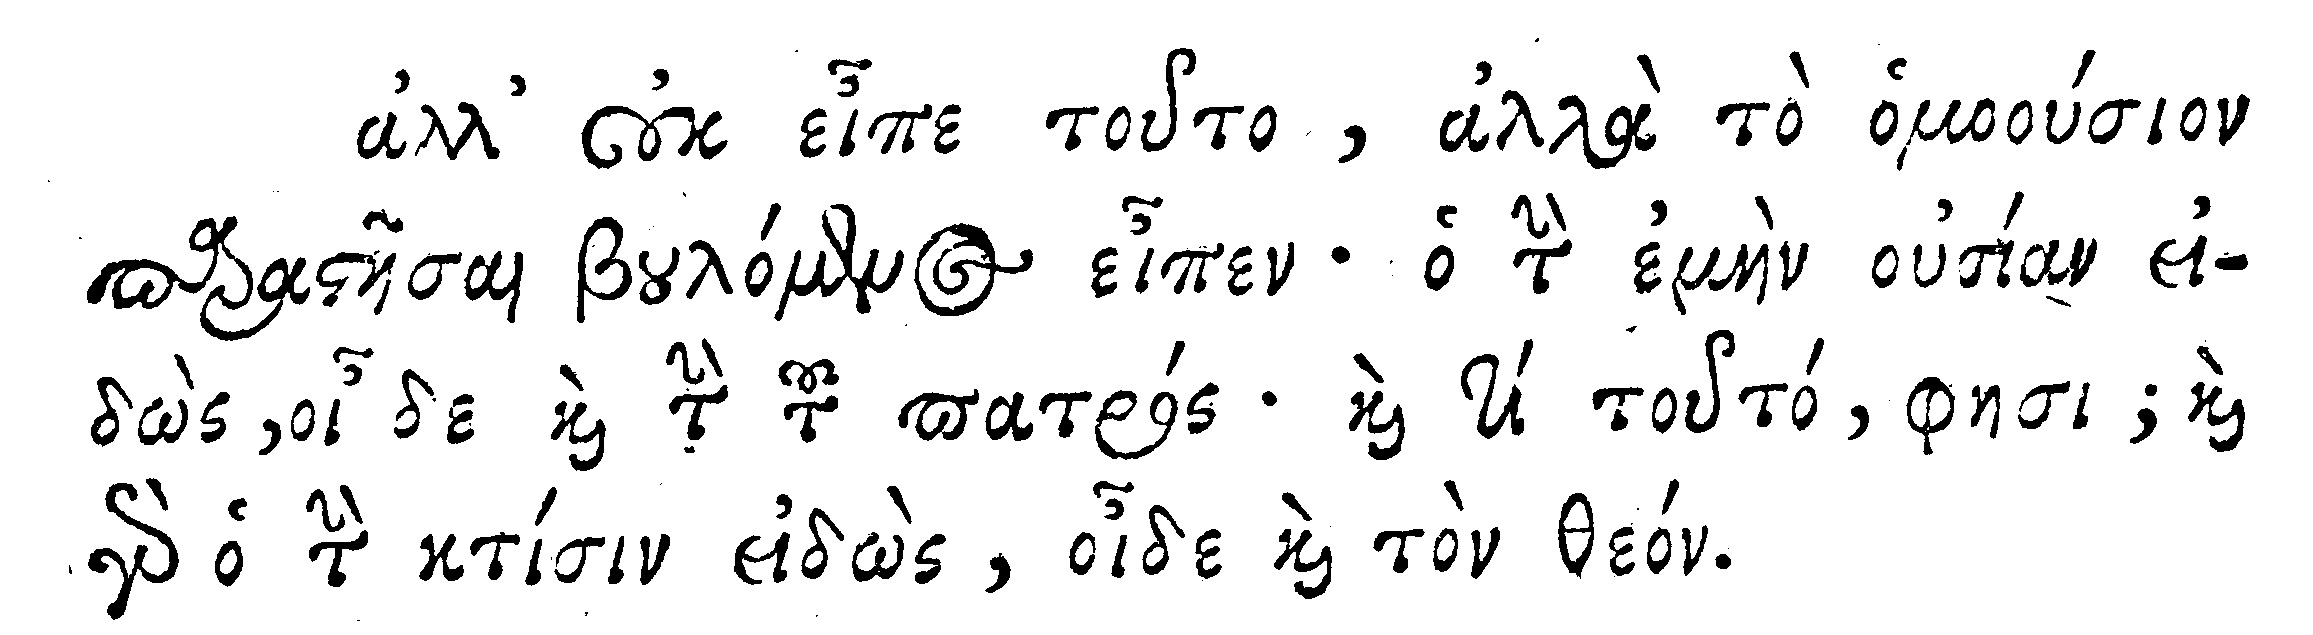 ἀλλ' οὐκ εἶπε τοῦτο, ἀλλὰ τὸ ὁμοούσιον
παραστῆσαι βουλόμενος εἶπεν· ὁ τὴν ἐμὴν οὐσίαν εἰ-
δὼς, οἶδε καὶ τὴν τοῦ πατρός· καὶ τί τοῦτό, φησι; καὶ
γὰρ ὁ τὴν κτίσιν εἰδὼς, οἶδε καὶ τὸν θεόν.